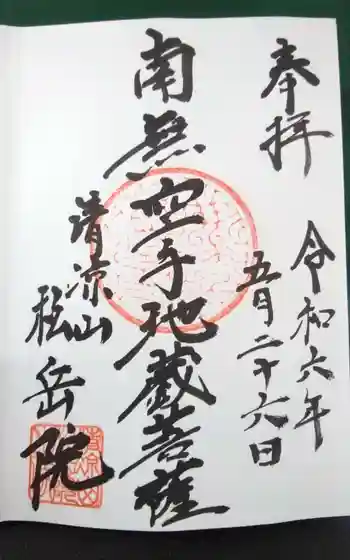 奉拝
令和六年
五月二十六日
南無空手地蔵菩薩
清凉山
松岳院